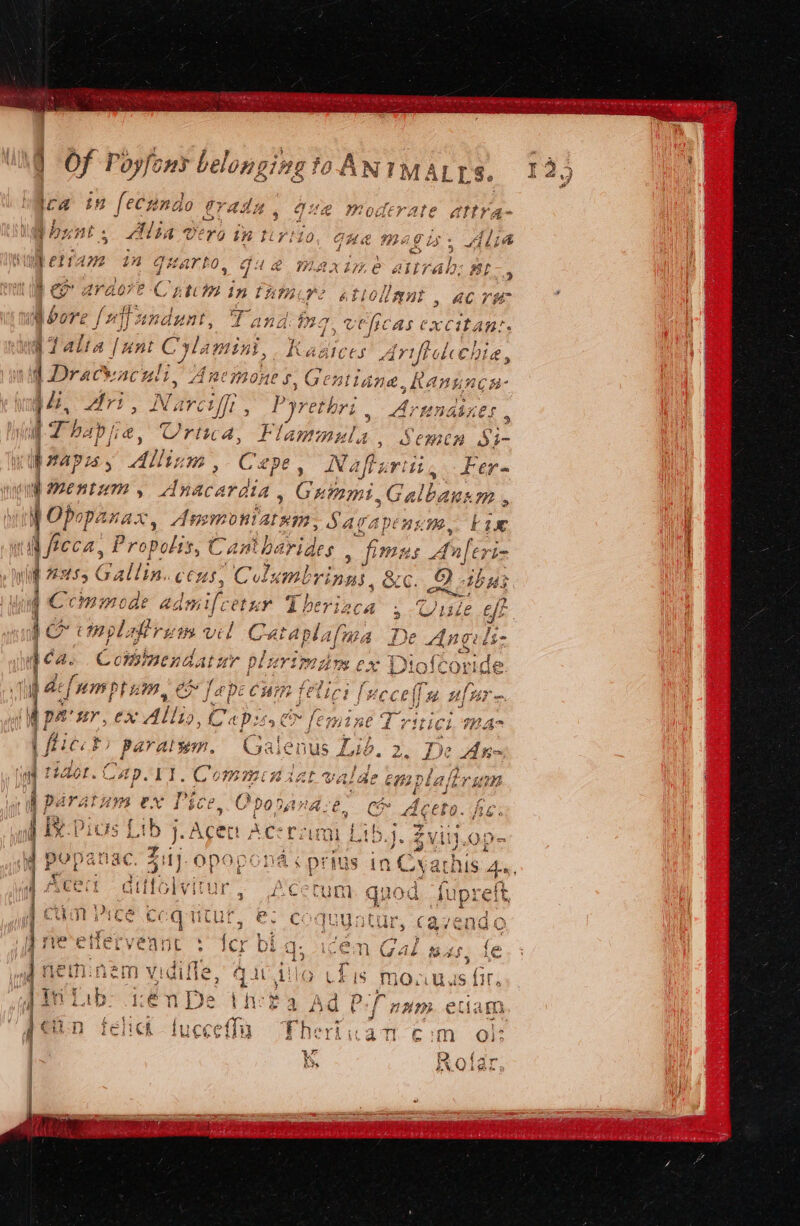 Of Poyſons belonging to ANIMALLS. 123
ca in ſecundo gradu, quæ moderate attra-
hunt; Alia vero in tertio, quæ magis; Alia
etiam in quarto, quæ maxime attrah; nt.,
& ardore Cutem in tumore attollunt, ac ru-
bore ſuffundunt, Tandemq, veſicas excitant.
Talia ſunt Cylamini, Radices Ariſtolochie,
Dracunculi, Anemones, Gentiana, Ranuncu-
li, Ari, Narciſſi, Pyrethri, Arundines,
Thapſia, Urtica, Flammula, Semen Si-
napis, Allium, Cepe, Naſturtii, Fer-
mentum, Anacardia, Gummi, Galbanum,
Opopanax, Ammoniatum, Sagapenum, Fix
ſicca, Propolis, Cantharides, fimus Anſeri-
nus, Gallin. ceus, Columbrinus, &c. Quibus
Commode admiſcetur Theriaca, Utile eſt
& emplaſtrum vel Cataplaſma De Angeli-
ca. Commendatur plurimum ex Dioſcoride
deſumptum, & ſæpe cum felici ſucceſſu uſur-
patur, ex Allio, Capis, & ſemine Tritici ma-
ſticat, paratum. Galenus Lib. 2. De An-
tidot. Cap. 11. Commendat valde emplaſtrum
paratum ex Pice, Opopanace, & Aceto. ſic.
℞. Picis Lib j. Acen Acerrimi Lib.j. ʒviij. op-
popanac. ʒiij. opoponā; prius in Cyathis 4..
Aceti diſſolvitur, Acetum quod ſupreſt
cum Pice coquitur, e: coquuntur, cavendo
ne efferveant: ſcribi q; idem Gal nus, ſe
neminem vidiſſe, qui illo uſus mortuus ſit.
In Lib. idēn De theria Ad Piſ num etiam
cūn felici ſucceſſu Theriacam cum ol:
K Roſar.